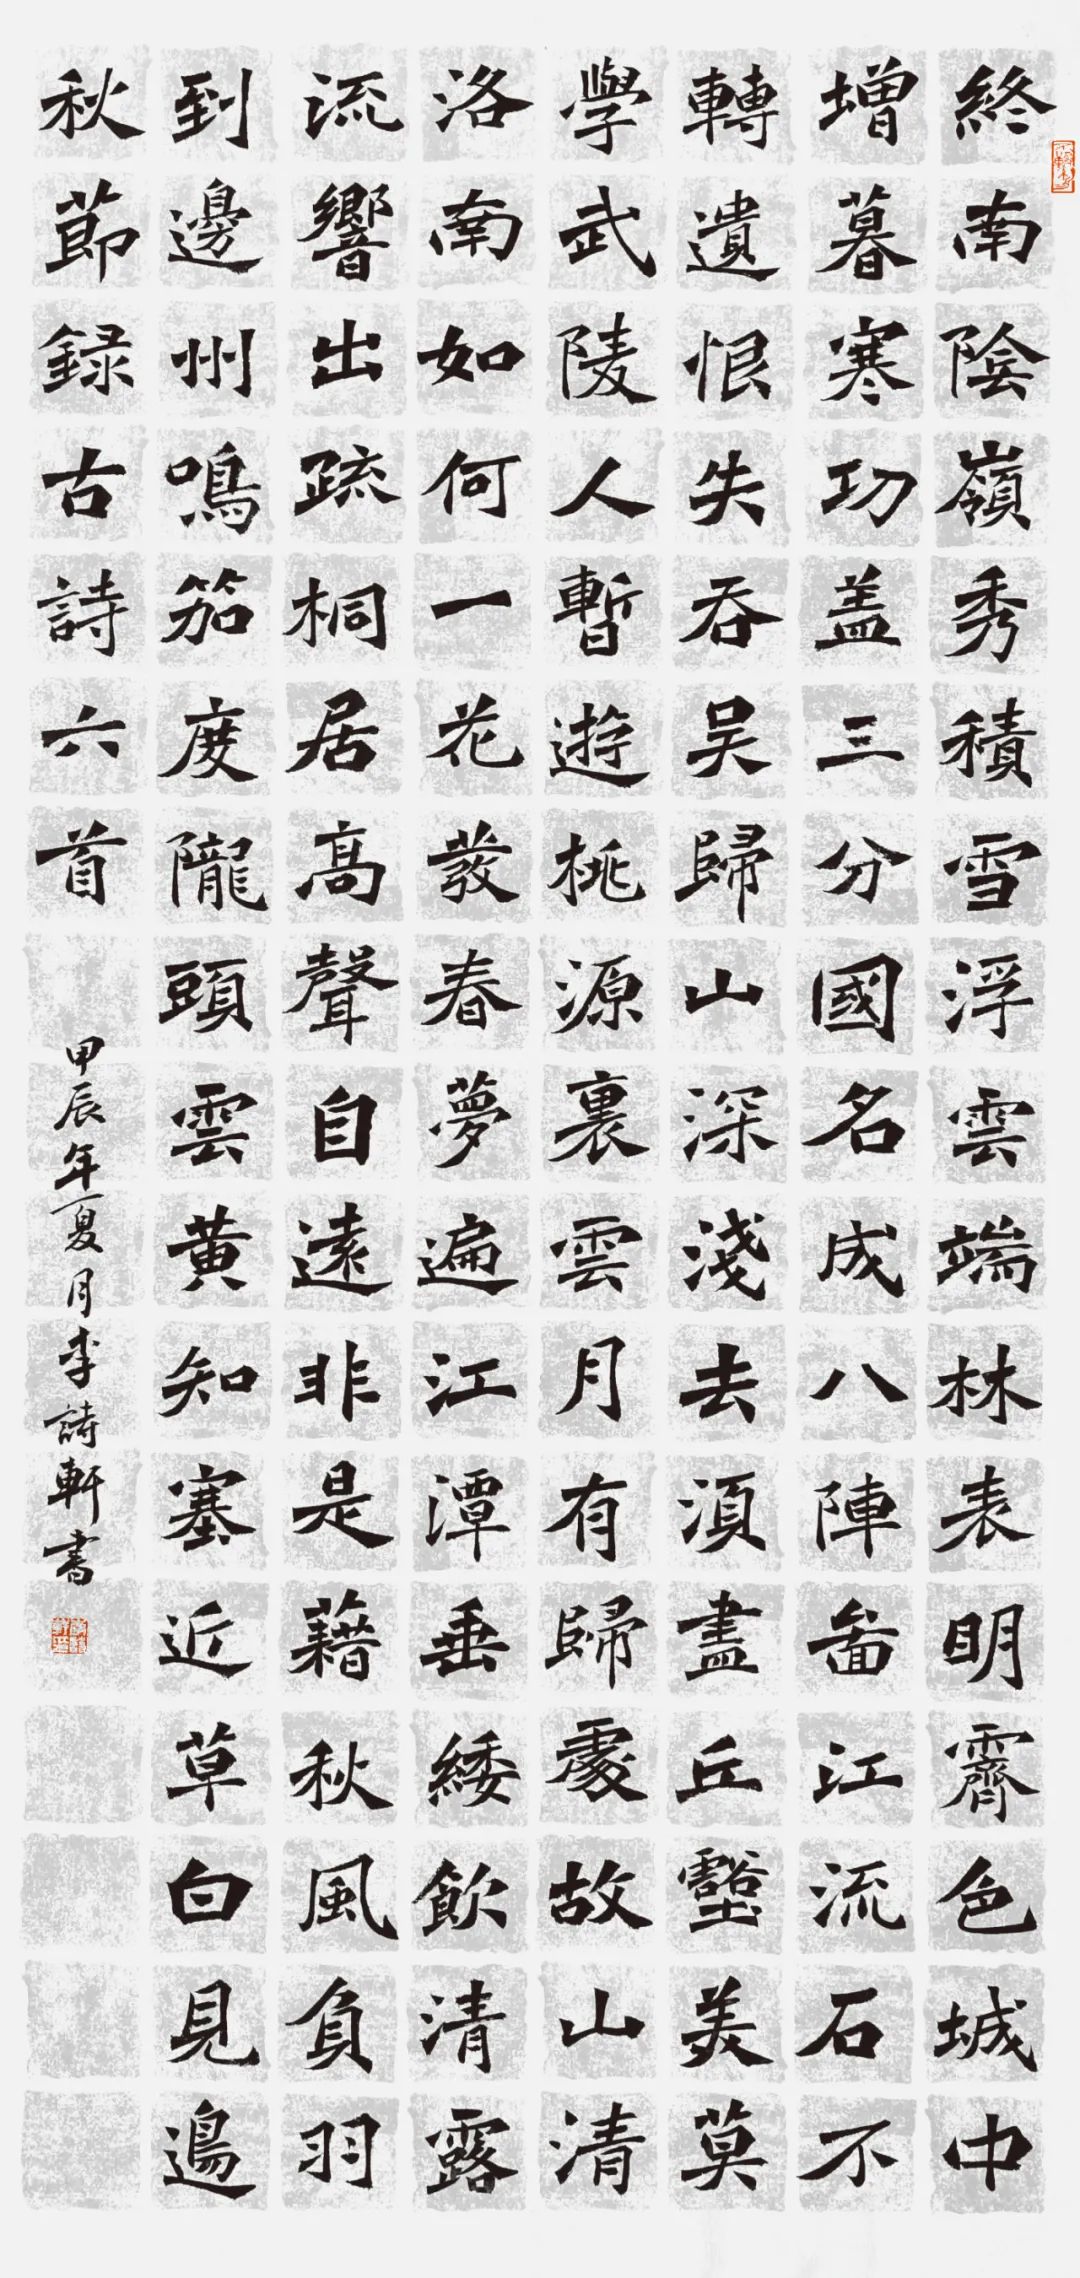 終南陰嶺秀積雪浮雲端林表明霽色城中
增暮寒功盖三分國名成八陣啚江流石不
轉遺恨失吞吴歸山深淺去湏盡丘壑美莫
學武陵人暫遊桃源裏雲月有歸處故山清
洛南如何一花發春夢遍江潭垂緌飲清露
流響出疏桐居高聲自遠非是藉秋風負羽
到邊州鳴笳度隴頭雲黄知塞近草白見邊
秋節録古詩六首
甲辰年夏月李詩軒書